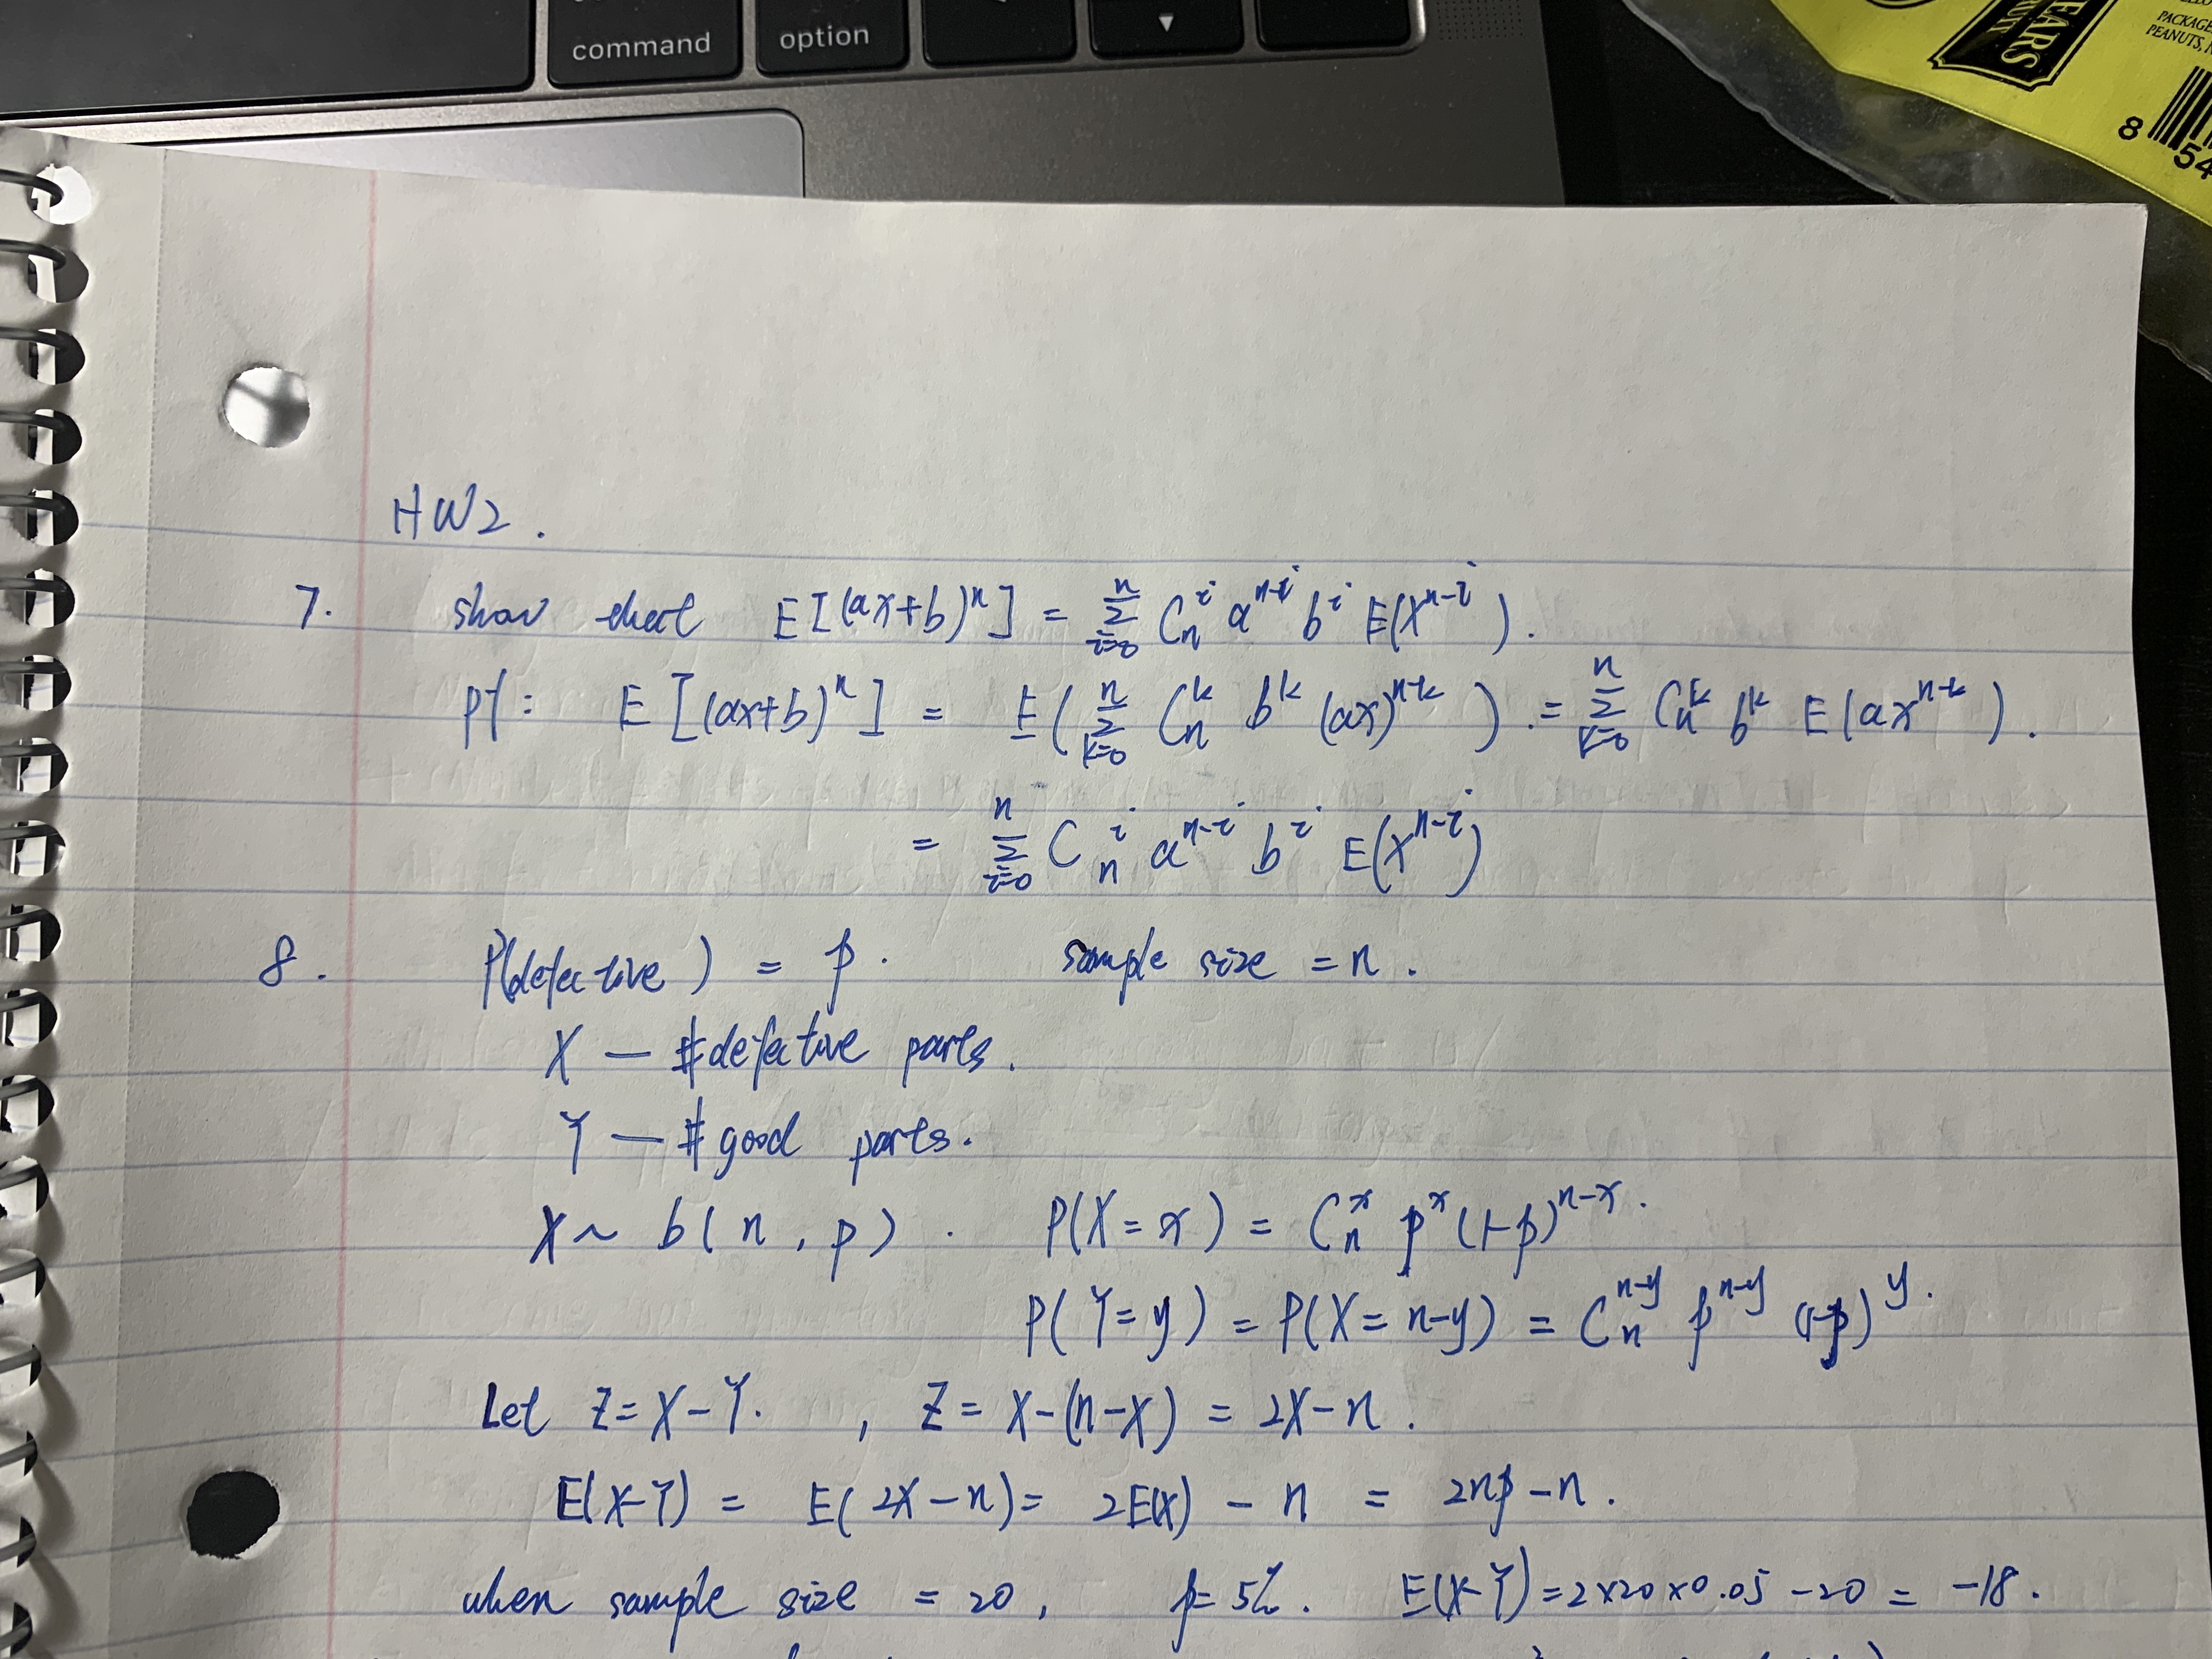 command
option
EARS
PACKAGE
PEANUTS,
8
54
HW2.
7. show that E[(ax+b)^n] = \sum_{i=0}^{n} C_n^i a^{n-i} b^i E(X^{n-i}).
pf: E[(ax+b)^n] = E(\sum_{k=0}^{n} C_n^k b^k (ax)^{n-k}). = \sum_{k=0}^{n} C_n^k b^k E(ax^{n-k}).
= \sum_{i=0}^{n} C_n^i a^{n-i} b^i E(X^{n-i})
8. P(defective) = p. sample size = n.
X — #defective parts.
Y — #good parts.
X ~ b(n, p). P(X=x) = C_n^x p^x (1-p)^{n-x}.
P(Y=y) = P(X=n-y) = C_n^{n-y} p^{n-y} (1-p)^y.
Let Z=X-Y. , Z = X-(n-X) = 2X-n.
E(X-Y) = E(2X-n) = 2E(X) - n = 2np-n.
when sample size = 20, p=5%. E(X-Y)=2×20×0.05-20 = -18.